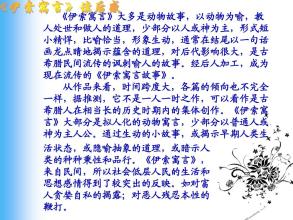 《伊索寓言》读后感
《伊索寓言》大多是动物故事，以动物为喻，教
人处世和做人的道理，少部分以人或神为主，形式短
小精悍，比喻恰当，形象生动，通常在结尾以一句话
画龙点睛地揭示蕴含的道理，对后代影响很大，是古
希腊民间流传的讽喻人的故事，经后人加工，成为
现在流传的《伊索寓言故事》。
从作品来看，时间跨度大，各篇的倾向也不完全
一样，据推测，它不是一人一时之作，可以看作是古
希腊人在相当长的历史时期内的集体创作。《伊索寓
言》大部分是拟人化的动物寓言，少部分以普通人或
神为主人公。通过生动的小故事，或揭示早期人类生
活状态，或隐喻抽象的道理，或暗示人
类的种种秉性和品行。《伊索寓言》，
来自民间，所以社会低层人民的生活和
思想感情得到了较突出的反映。如对富
人贪婪自私的揭露；对恶人残忍本性的
鞭打。